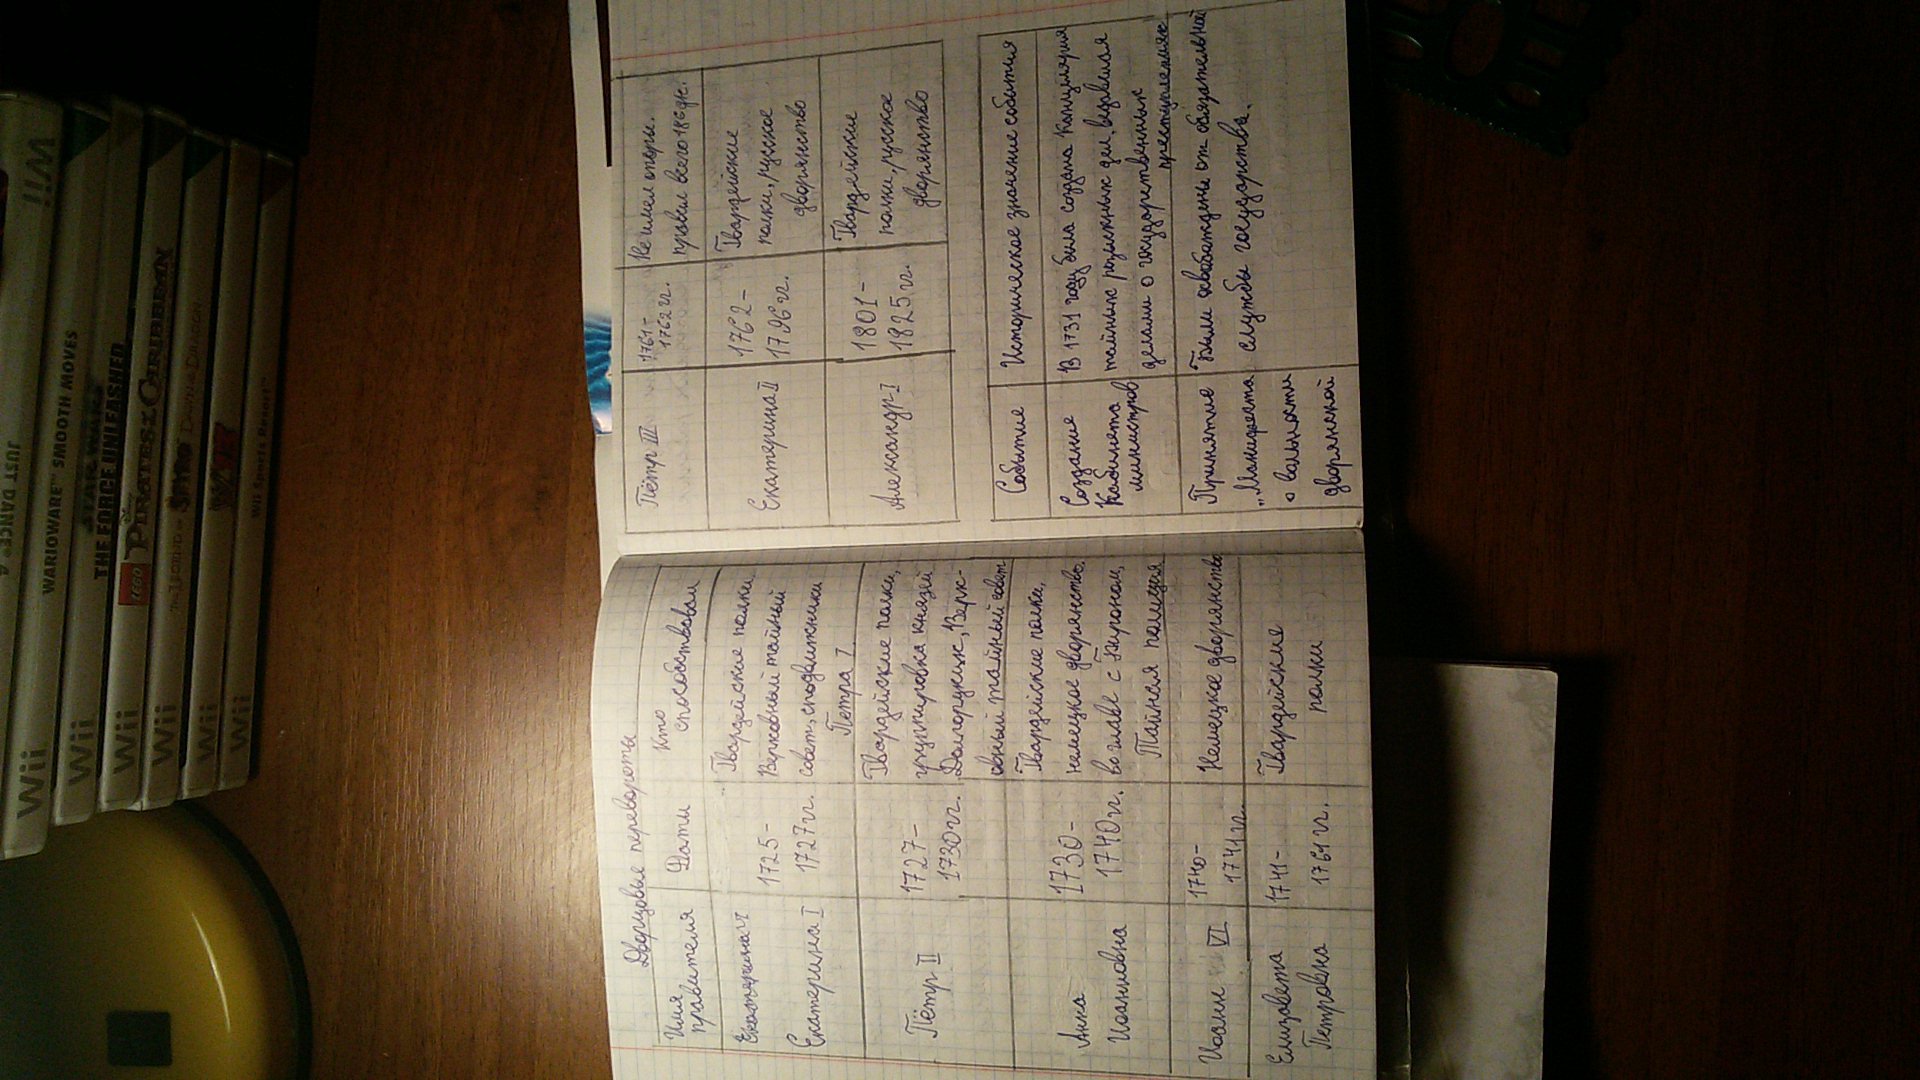 Дворцовые перевороты
Имя правителя
Даты
Кто способствовал
Екатерина I
1725-1727гг.
Гвардейские полки,
Верховный тайный
совет, сподвижники
Петра I.
Пётр II
1727-1730гг.
Гвардейские полки,
группировка князей
Долгоруких, Верх-
овный тайный совет
Анна Иоанновна
1730-1740гг.
Гвардейские полки,
немецкое дворянство,
во главе с Бироном,
Тайная полиция
Иоанн VI
1740-1741гг.
Немецкое дворянство
Елизавета Петровна
1741-1761гг.
Гвардейские
полки
Пётр III
1761-1762гг.
Не имел опоры.
правил всего 186дн.
Екатерина II
1762-1796гг.
Гвардейские
полки, русское
дворянство
Александр I
1801-1825гг.
Гвардейские
полки, русское
дворянство
Событие
Историческое значение события
Создание
Кабинета
министров
В 1731 году была создана Канцелярия
тайных розыскных дел, ведавшая
делами о государственных
преступлениях
Принятие
„Манифеста
о вольности
дворянской
Были освобождены от обязательной
службы государства.
Wii
JUST DANCE 4
Wii
WARIOWARE™ SMOOTH MOVES
Wii
STAR WARS
THE FORCE UNLEASHED
Wii
LEGO
PIRATES OF THE CARIBBEAN
Wii
THE LEGEND OF SPYRO
Wii
Wii Sports Resort™
Wii